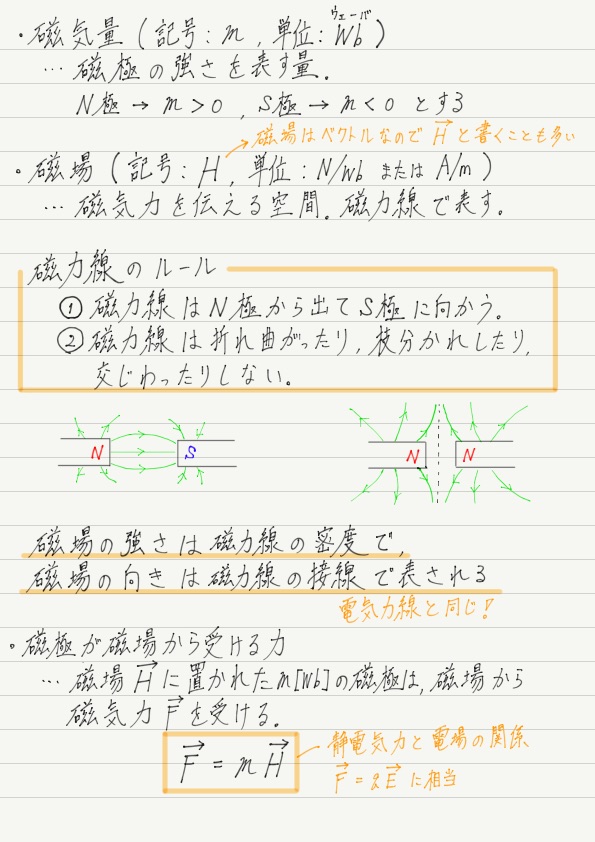 ・磁気量（記号：m，単位：Wb）
ウェーバ
… 磁極の強さを表す量．
N極 → m > 0 ，S極 → m < 0 とする
磁場はベクトルなので H→ と書くことも多い
・磁場（記号：H，単位：N/Wb または A/m）
… 磁気力を伝える空間．磁力線で表す．
磁力線のルール
① 磁力線はN極から出てS極に向かう．
② 磁力線は折れ曲がったり，枝分かれしたり，
交じわったりしない。
N S
N N
磁場の強さは磁力線の密度で，
磁場の向きは磁力線の接線で表される
電気力線と同じ！
・磁極が磁場から受ける力
… 磁場 H→ に置かれた m[Wb]の磁極は，磁場から
磁気力 F→ を受ける．
F→ = m H→
静電気力と電場の関係
F→ = q E→ に相当